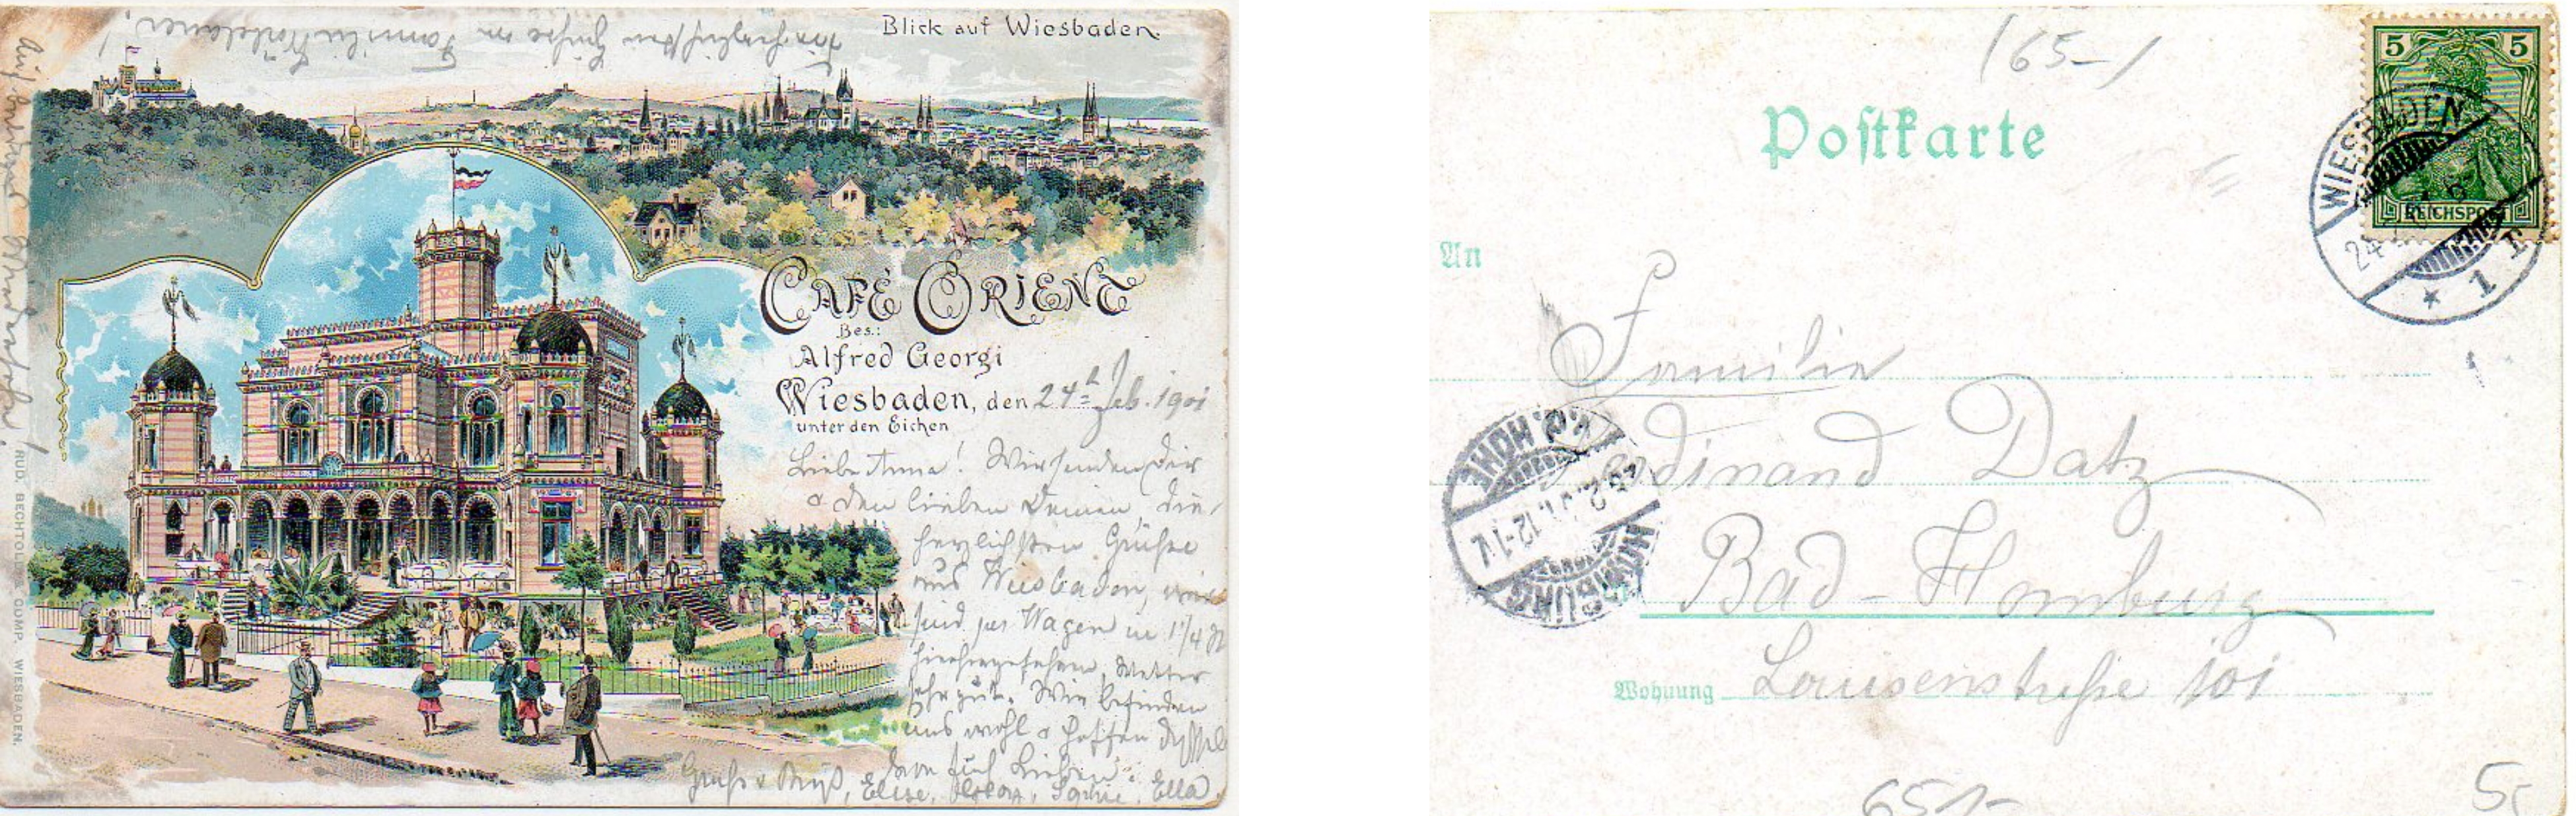 Blick auf Wiesbaden.
Die herzlichsten Grüße an Familie
CAFÉ ORIENT
Bes.:
Alfred Georgi
Wiesbaden, den 24t Feb. 1901
unter den Eichen
Liebe Anna! Wir senden Dir
& den lieben Deinen die
herzlichsten Grüße
aus Wiesbaden, wir
sind per Wagen in 1 1/4 St
hierhergefahren, Wetter
sehr gut. Wir befinden
uns wohl & hoffen
von Euch Lieben.
Gruß & Kuß, Elise, Sophie, Ella
Auf baldiges Wiedersehn!
RUD. BECHTOLD & COMP. WIESBADEN.
(65-)
Postkarte
5 5
REICHSPOST
WIESBADEN
24
* 1
An
Familie
Ferdinand Datz
HOMBURG
v.d. HÖHE
12-1 V
Bad-Homburg
Wohnung Louisenstraße 101
651-
5-